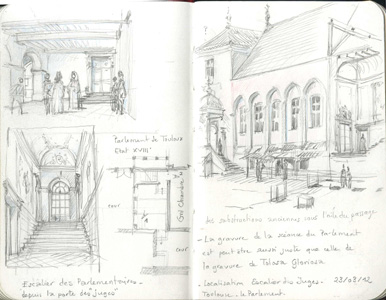 Parlement de Toulouse
Etat XVIIIe
Gde Chambre
cour
cour
Escalier des Parlementaires -
depuis la porte des Juges
les substructions anciennes sous l'aile du passage.
- La gravure de la séance du Parlement
est peut être aussi juste que celle de
la gravure de Tolosa Gloriosa
- Localisation Escalier des Juges - 28/08/92
Toulouse - le Parlement -